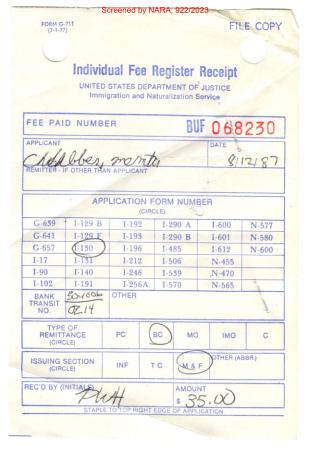 Screened by NARA, 922/2023
FORM G-711
(7-1-77)
FILE COPY
Individual Fee Register Receipt
UNITED STATES DEPARTMENT OF JUSTICE
Immigration and Naturalization Service
FEE PAID NUMBER BUF 068230
APPLICANT
DATE
8/12/87
REMITTER - IF OTHER THAN APPLICANT
APPLICATION FORM NUMBER
(CIRCLE)
G-639 I-129 B I-192 I-290 A I-600 N-577
G-641 I-129 F I-193 I-290 B I-601 N-580
G-657 I-130 I-196 I-485 I-612 N-600
I-17 I-131 I-212 I-506 N-455
I-90 I-140 I-246 I-539 N-470
I-102 I-191 I-256A I-570 N-565
BANK TRANSIT NO.
0214
OTHER
TYPE OF REMITTANCE (CIRCLE) PC BC MO IMO C
ISSUING SECTION (CIRCLE) INF T C M & F OTHER (ABBR.)
REC'D BY (INITIALS)
AMOUNT
$ 35.00
STAPLE TO TOP RIGHT EDGE OF APPLICATION